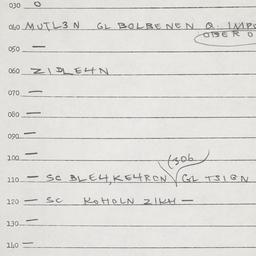 030 0
040 MUTL3N GL BOLBENEN Q. IMPO
OBER O
050 —
060 ZIDLE4N
070 —
080 —
090 —
100 — (306
110 — SC BLE4,KE4RON GL TSIGN
120 — SC KOHOLN ZIKH —
130 —
140 —